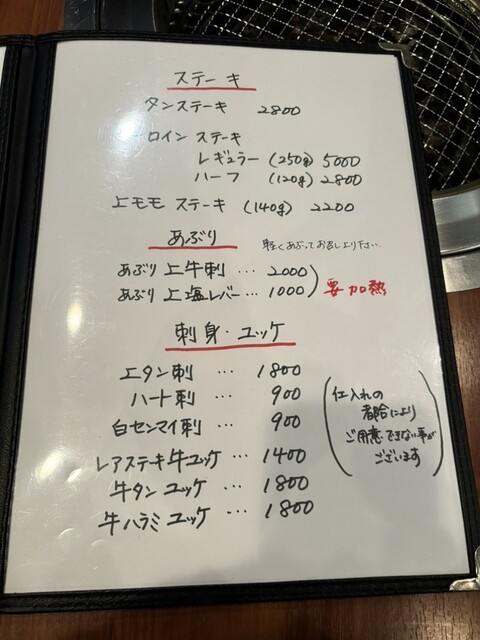 ステーキ
タンステーキ 2800
ロイン ステーキ
レギュラー (250g) 5000
ハーフ (120g) 2800
上モモ ステーキ (140g) 2200
あぶり 軽くあぶってお召し上り下さい
あぶり 上牛刺 … 2000
あぶり 上塩レバー … 1000
要加熱
刺身・ユッケ
上タン刺 … 1800
ハート刺 … 900
白センマイ刺 … 900
レアステーキ牛ユッケ … 1400
牛タン ユッケ … 1800
牛ハラミ ユッケ … 1800
(仕入れの
都合により
ご用意できない事が
ございます)